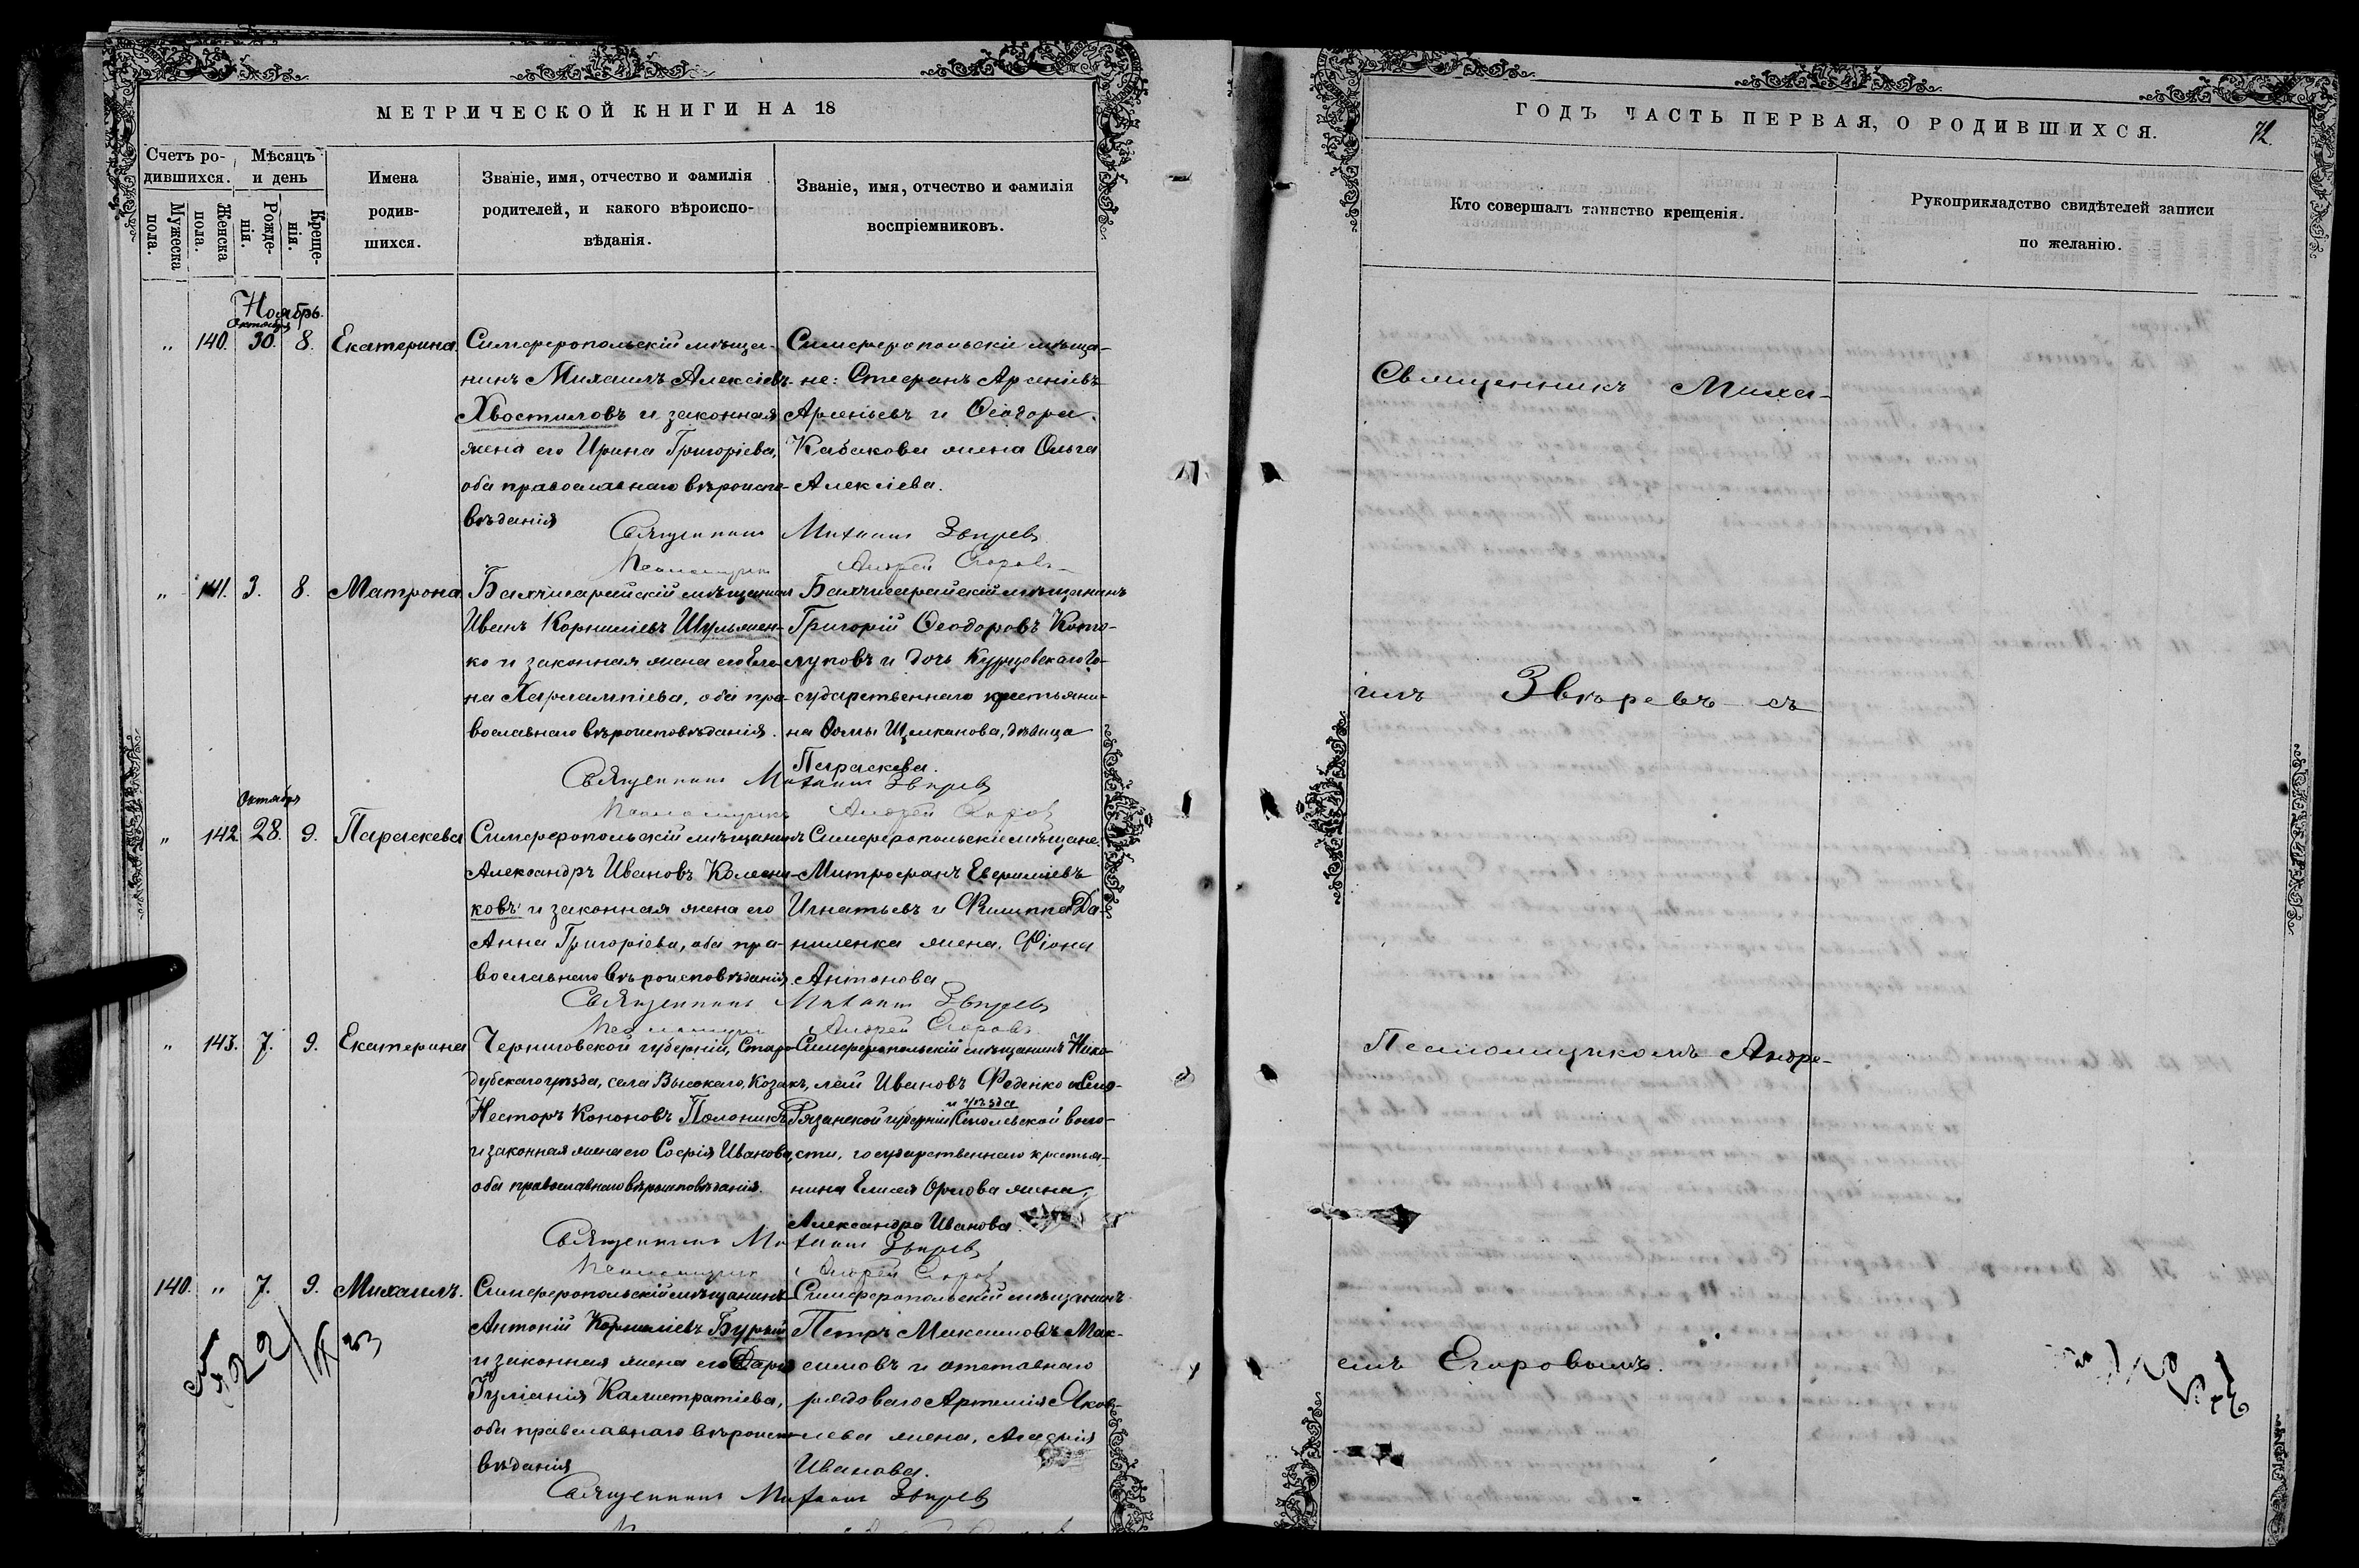 МЕТРИЧЕСКОЙ КНИГИ НА 18
Счетъ ро-
дившихся.
Мужеска
пола.
Женска
пола.
Мѣсяцъ
и день
Рожде-
нія.
Креще-
нія.
Имена
родив-
шихся.
Званіе, имя, отчество и фамилія
родителей, и какого вѣроиспо-
вѣданія.
Званіе, имя, отчество и фамилія
воспріемниковъ.
Ноябрь.
Октября
„ 140. 30. 8. Екатерина.
Симферопольскій мѣща-
нинъ Михаилъ Алексіевъ
Хвостиловъ и законная
жена его Ирина Григоріева,
оба православнаго вѣроиспо-
вѣданія
Симферопольскіе мѣща-
не: Стефанъ Арсеніевъ
Арсеньевъ и Ѳеодора
Кабакова жена Ольга
Алексіева.
Священникъ Михаилъ Звѣревъ
Псаломщикъ Андрей Егоровъ
„ 141. 3. 8. Матрона
Бахчисарайскій мѣщанинъ
Иванъ Корниліевъ Шульжен-
ко и законная жена его Еле
на Харлампіева, оба пра-
вославнаго вѣроисповѣданія.
Бахчисарайскій мѣщанинъ
Григорій Ѳеодоровъ Кото-
луповъ и дочь Курцовскаго Го-
сударственнаго крестьяни-
на Ѳомы Щелканова, дѣвица
Параскева.
Священникъ Михаилъ Звѣревъ
Псаломщикъ Андрей Егоровъ
Октября
„ 142. 28. 9. Параскева
Симферопольскій мѣщанинъ
Александръ Ивановъ Колесни-
ковъ и законная жена его
Анна Григоріева, оба пра-
вославнаго вѣроисповѣданія
Симферопольскіе мѣщане:
Митрофанъ Евфиміевъ
Игнатьевъ и Филиппа Да-
ниленка жена, Фіона
Антонова
Священникъ Михаилъ Звѣревъ
Псаломщикъ Андрей Егоровъ
„ 143. 7. 9. Екатерина
Черниговской губерніи, Старо
дубскаго уѣзда, села Высокаго, Козакъ,
Несторъ Кононовъ Полоникъ
и законная жена его Софія Иванова,
оба православнаго вѣроисповѣданія.
Симферопольскій мѣщанинъ Нико-
лай Ивановъ Феденко и
Рязанской губерніи и уѣзда воло-
сти, государственнаго крестья-
нина Елисея Орлова жена,
Александра Иванова.
Священникъ Михаилъ Звѣревъ
Псаломщикъ Андрей Егоровъ
140. „ 7. 9. Михаилъ.
Симферопольскій мѣщанинъ
Антоній Корниліевъ Бурый
и законная жена его Дарія
Гуліанія Калистратіева,
оба православнаго вѣроиспо-
вѣданія
Симферопольскій мѣщанинъ
Петръ Максимовъ Мак-
симовъ и отставнаго
рядоваго Артемія Яков-
лева жена, Агафія
Иванова.
Священникъ Михаилъ Звѣревъ
ГОДЪ ЧАСТЬ ПЕРВАЯ, О РОДИВШИХСЯ.
72.
Кто совершалъ таинство крещенія.
Рукоприкладство свидѣтелей записи
по желанію.
Священникъ Миха-
илъ Звѣревъ съ
Псаломщикомъ Андре-
емъ Егоровымъ.